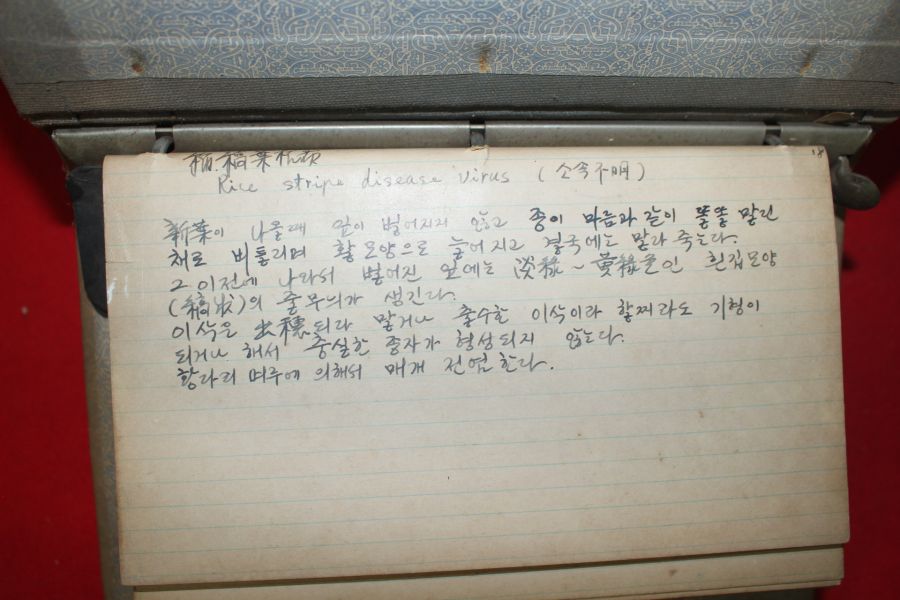 稻縞葉枯病
Rice stripe disease virus (소속不明)
18
新葉이 나올때 잎이 벌어지지 않고 종이 마름과 같이 똘똘 말린
채로 비틀리며 활모양으로 늘어지고 결국에는 말라 죽는다.
그 이전에 나와서 벌어진 잎에는 淡綠~黃綠色인 흰집모양
(縞狀)의 줄무늬가 생긴다.
이삭은 出穗되다 말거나 출수한 이삭이라 할찌라도 기형이
되거나 해서 충실한 종자가 형성되지 않는다.
항다리 며루에 의해서 매개 전염한다.